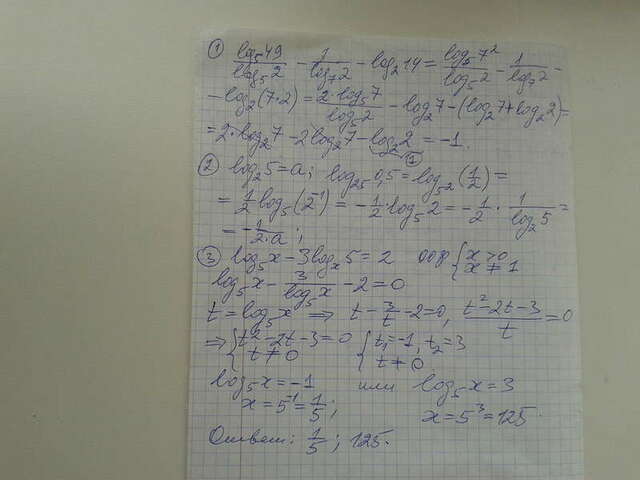 ① log₅49/log₅2 - 1/log₇2 - log₂14 = log₅7²/log₅2 - 1/log₇2 -
- log₂(7·2) = 2·log₅7/log₅2 - log₂7 - (log₂7 + log₂2) =
= 2·log₂7 - 2log₂7 - log₂2 = -1.
① 
② log₂5 = a; log₂₅0,5 = log₅²(1/2) =
= 1/2 log₅(2⁻¹) = -1/2·log₅2 = -1/2 · 1/log₂5 =
= -1/2·a ;
③ log₅x - 3logₓ5 = 2 ООФ { x > 0 x ≠ 1
log₅x - 3/log₅x - 2 = 0
t = log₅x ⇒ t - 3/t - 2 = 0, t² - 2t - 3/t = 0
⇒ { t² - 2t - 3 = 0 t ≠ 0 { t₁ = -1, t₂ = 3 t ≠ 0
log₅x = -1 или log₅x = 3
x = 5⁻¹ = 1/5 ; x = 5³ = 125.
Ответ: 1/5 ; 125.